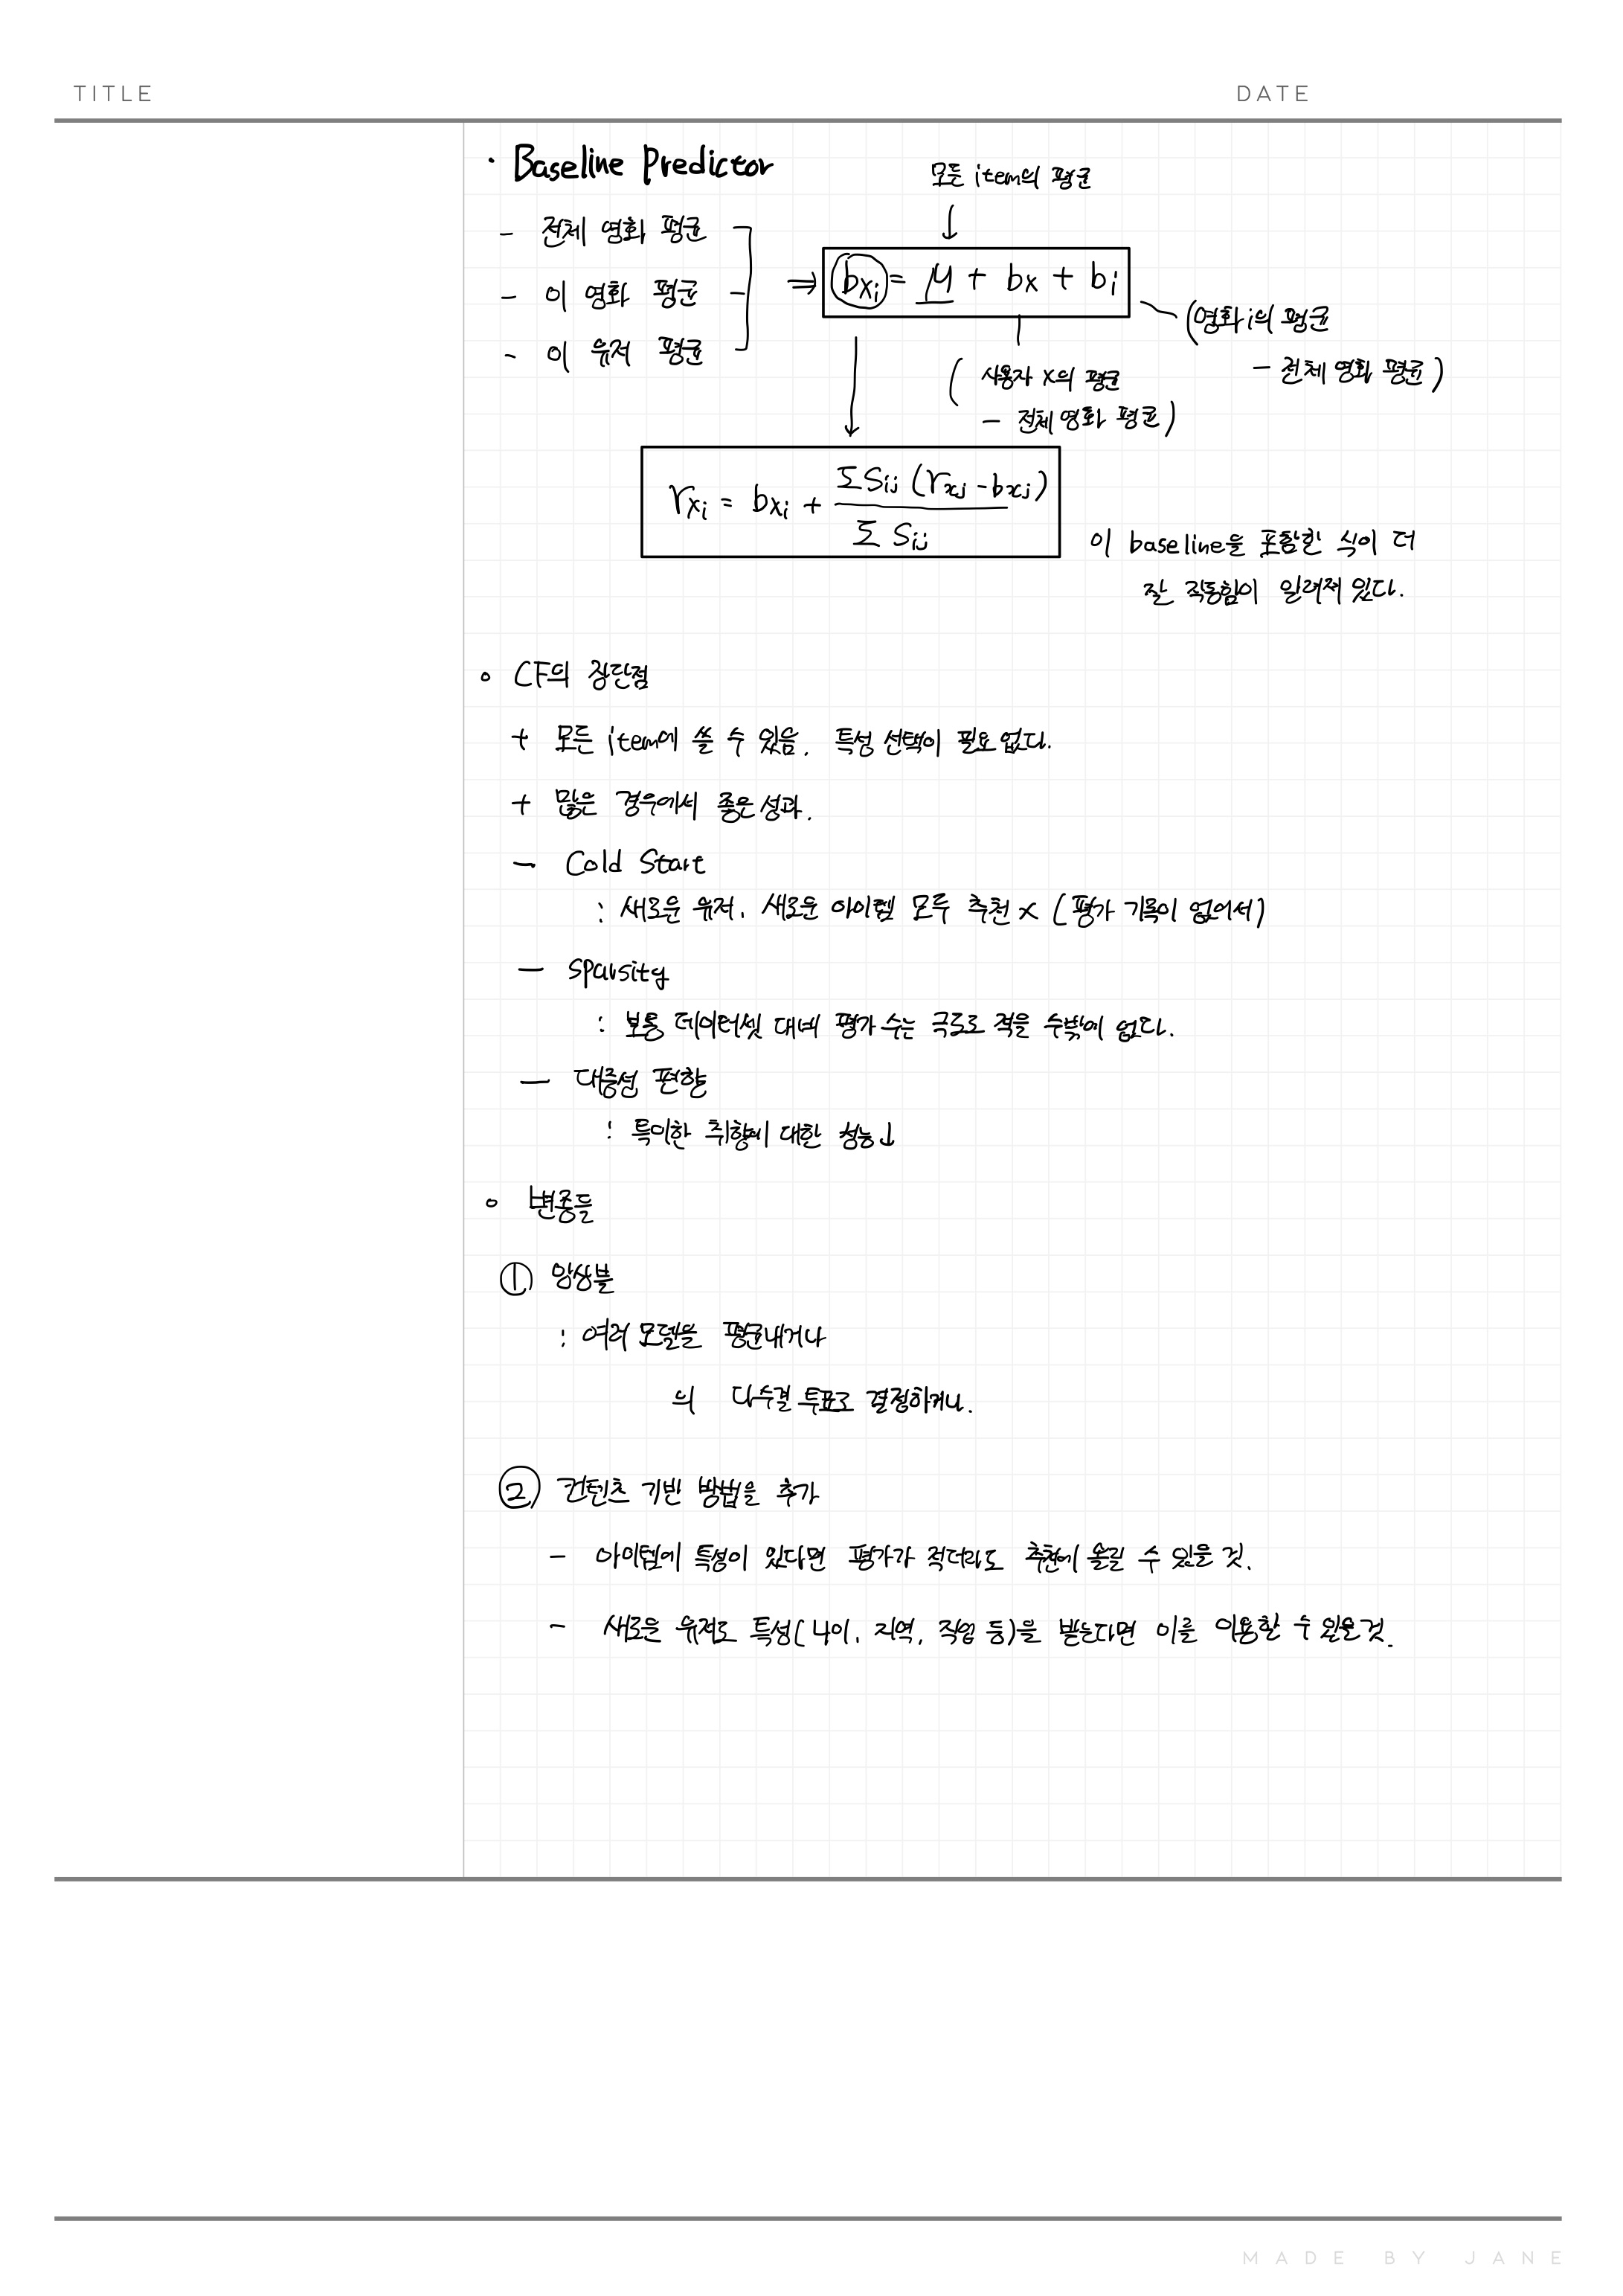 TITLE
DATE
· Baseline Predictor
모든 item의 평균
↓
- 전체 영화 평균
- 이 영화 평균
- 이 유저 평균
⇒ bxi = μ + bx + bi
(영화 i의 평균
- 전체 영화 평균)
( 사용자 x의 평균
- 전체 영화 평균)
rxi = bxi + ΣSij (rxj - bxj) / Σ Sij
이 baseline을 포함한 식이 더
잘 작동함이 알려져 있다.
◦ CF의 장단점
+ 모든 item에 쓸 수 있음. 특성 선택이 필요 없다.
+ 많은 경우에서 좋은 성과.
- Cold Start
: 새로운 유저, 새로운 아이템 모두 추천 x (평가 기록이 없어서)
- sparsity
: 보통 데이터셋 대비 평가 수는 극도로 적을 수밖에 없다.
- 대중성 편향
: 특이한 취향에 대한 성능↓
◦ 변종들
① 앙상블
: 여러 모델을 평균내거나
의 다수결 투표로 결정하거나.
② 컨텐츠 기반 방법을 추가
- 아이템에 특성이 있다면 평가가 적더라도 추천에 올릴 수 있을 것.
- 새로운 유저도 특성(나이, 지역, 직업 등)을 받는다면 이를 이용할 수 있을 것.
MADE BY JANE